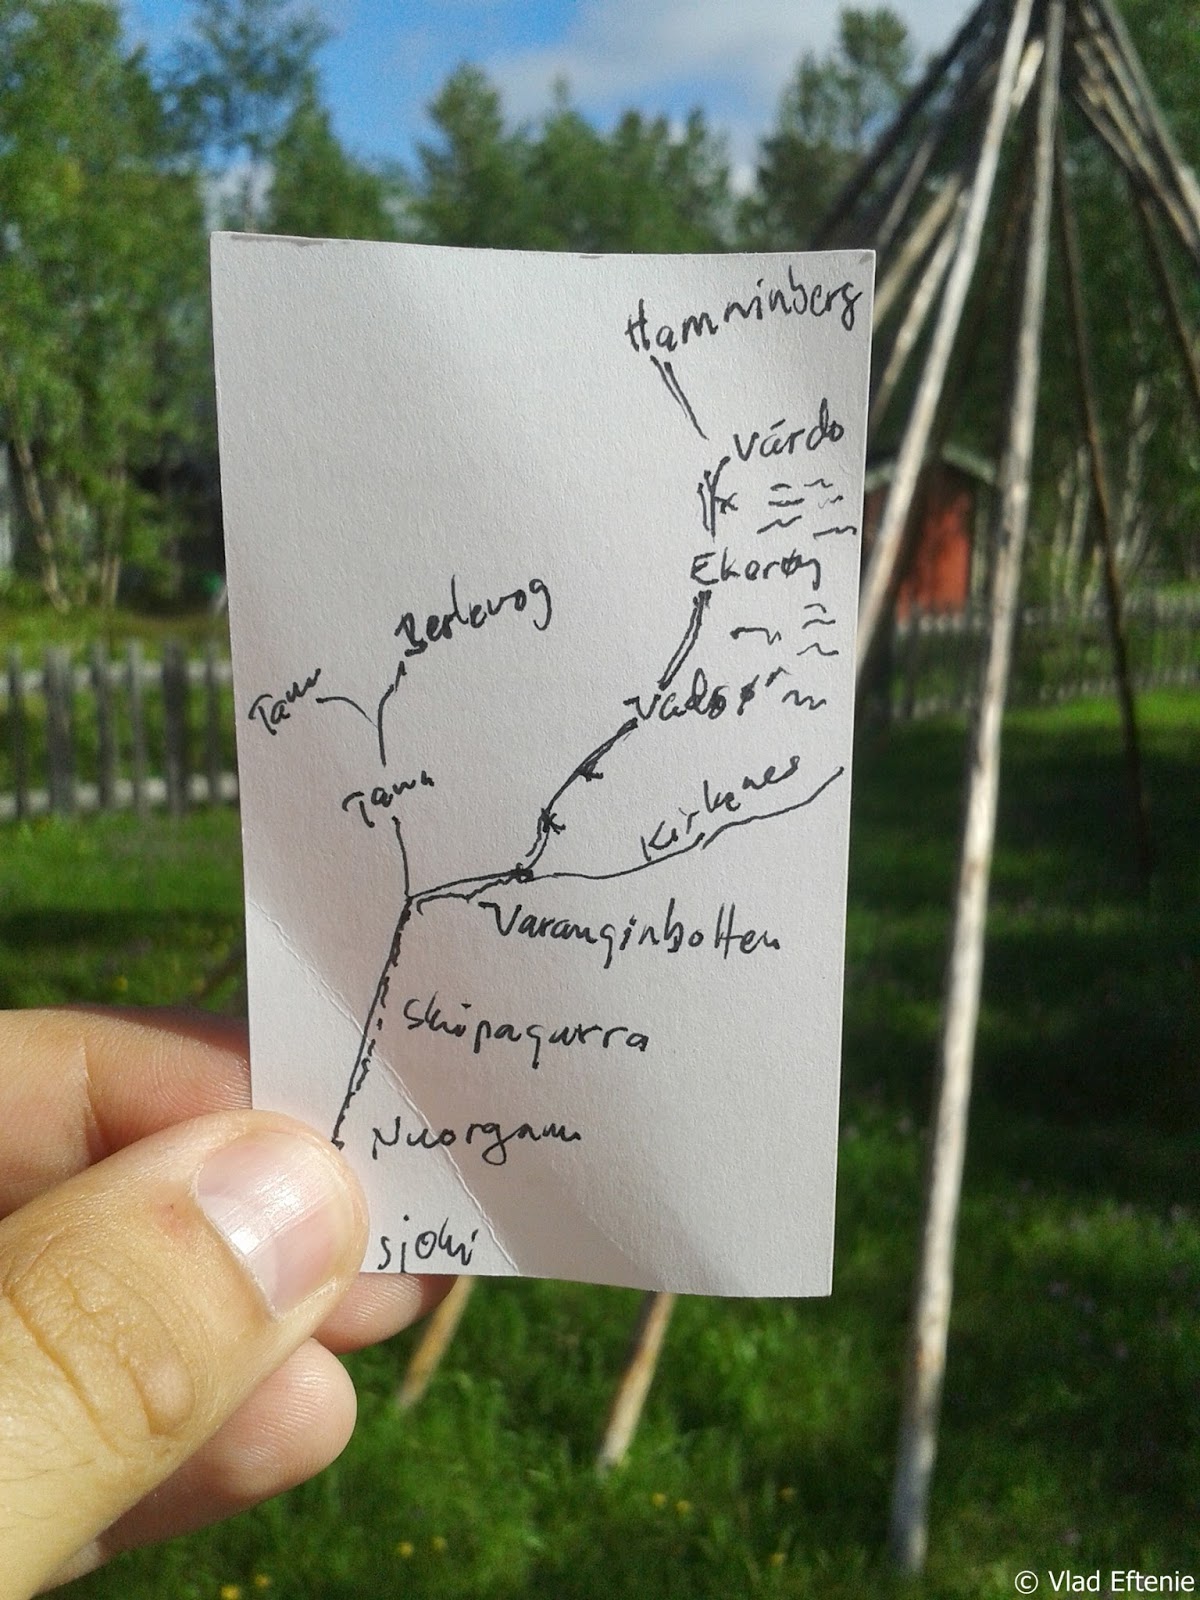 Hamninberg
Várdo
Ekerøy
Berlevog
Tana
Vadsø
Tana
Kirkenes
Varanginbotten
Skipagurra
Nuorgam
sjoki
© Vlad Eftenie